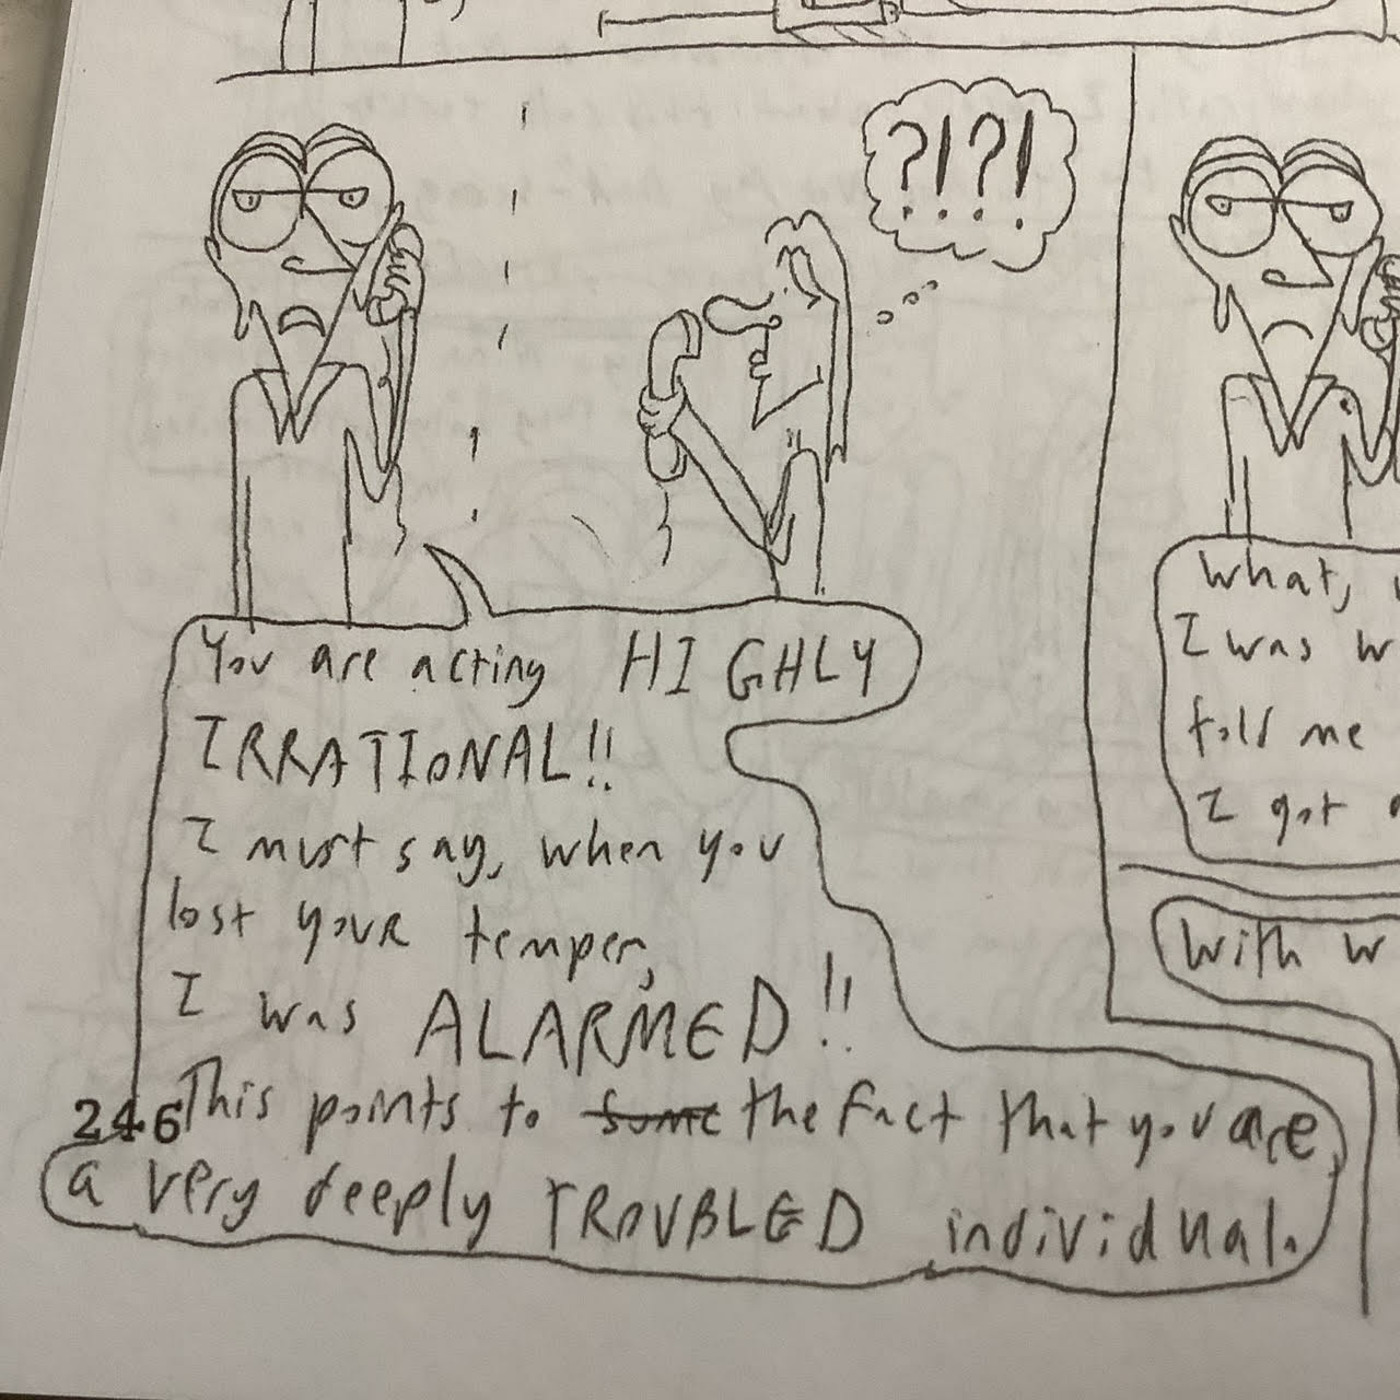 ?!?!
You are acting HIGHLY
IRRATIONAL!!
I must say, when you
lost your temper,
I was ALARMED!!
This points to some the fact that you are
a very deeply TROUBLED individual.
246
What,
I was w
told me
I got
With w